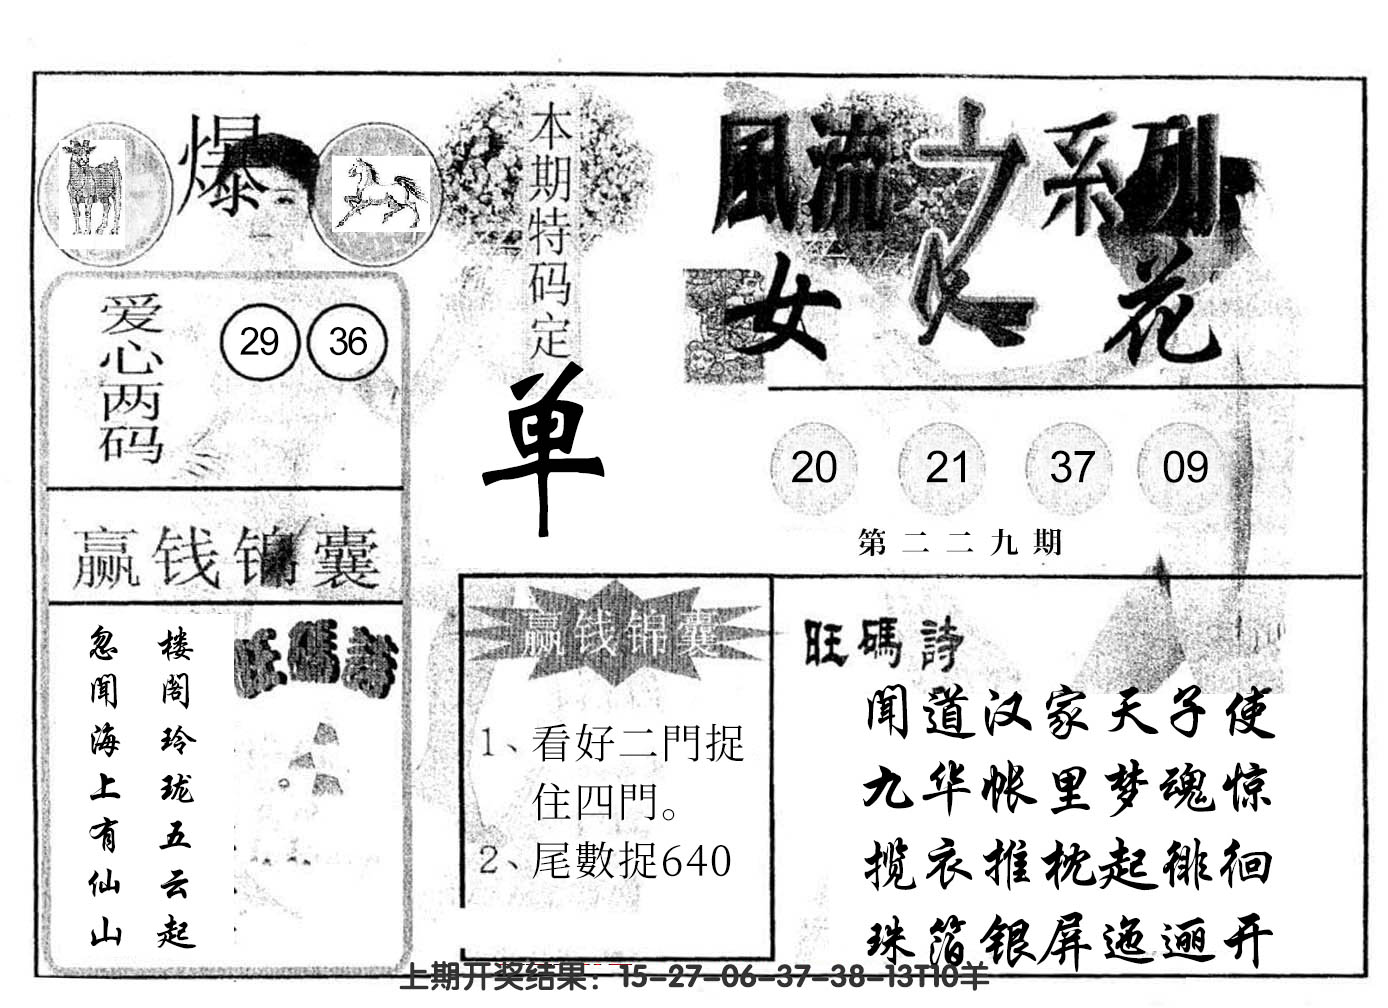 爆
本期特码定
单
風流之系列
女人花
爱心两码
29 36
20 21 37 09
第二二九期
赢钱锦囊
旺碼詩
忽闻海上有仙山
楼阁玲珑五云起
赢钱锦囊
1、看好二門捉
住四門。
2、尾數捉640
旺碼詩
闻道汉家天子使
九华帐里梦魂惊
揽衣推枕起徘徊
珠箔银屏迤逦开
上期开奖结果：15-27-06-37-38-13T10羊